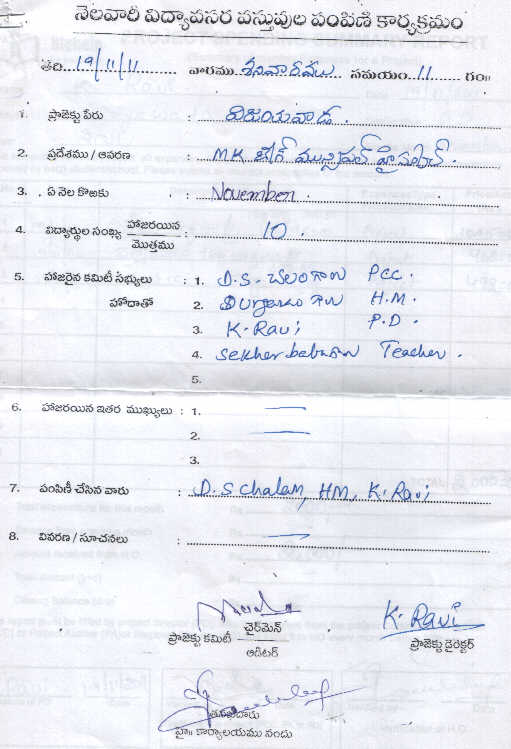 నెలవారీ విద్యావసర వస్తువుల పంపిణీ కార్యక్రమం
తేది 19/11/11 వారము శనివారము సమయం 11 గం॥
1. ప్రాజెక్టు పేరు : విజయవాడ.
2. ప్రదేశము / ఆవరణ : MK బేగ్ మున్సిపల్ హైస్కూల్.
3. ఏ నెల కొఱకు : November.
4. విద్యార్థుల సంఖ్య హాజరయిన / మొత్తము : 10.
5. హాజరైన కమిటీ సభ్యులు : 1. D.S. చలంగారు PCC.
హోదాతో 2. గారు H.M.
3. K. Ravi P.D.
4. Sekher babu గారు Teacher.
5.
6. హాజరయిన ఇతర ముఖ్యులు : 1. —
2. —
3.
7. పంపిణీ చేసిన వారు : D.S Chalam, HM, K. Ravi
8. వివరణ / సూచనలు : —
ప్రాజెక్టు కమిటీ చైర్‌మెన్ / ఆడిటర్
K. Ravi
ప్రాజెక్టు డైరెక్టర్
తనిఖీదారు
హై॥ కార్యాలయము నందు